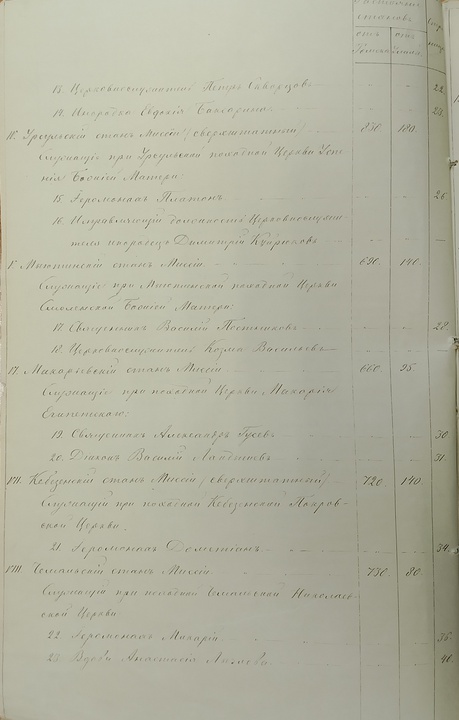 становъ
отъ
отъ
13. Церковнослужитель Петръ Скворцовъ 22.
14. Инородка Евдокія 23.
IV. Урсульскій станъ Миссіи (сверхштатный) 830. 180.
Служащіе при Урсульской походной Церкви Успе-
нія Божіей Матери:
15. Іеромонахъ Платонъ 26
16. Исправляющій должность Церковнослужи-
теля инородецъ Димитрій
V. Мыютинскій станъ Миссіи 690. 140.
Служащіе при Мыютинской походной Церкви
Смоленской Божіей Матери:
17. Священникъ Василій Постниковъ 28.
18. Церковнослужитель Козма Васильевъ
VI. Макарьевскій станъ Миссіи 660. 95.
Служащіе при походной Церкви Макарія
Египетскаго:
19. Священникъ Александръ Гусевъ 30
20. Діаконъ Василій Ландышевъ 31.
VII. Кебезенскій станъ Миссіи (сверхштатный) 720 140.
Служащій при походной Кебезенской Покров-
ской Церкви.
21. Іеромонахъ Дометіанъ 34.
VIII. Чемальскій станъ Миссіи 730. 80.
Служащій при походной Чемальской Николаев-
ской Церкви
22. Іеромонахъ Макарій 36.
23. Вдова Анастасія 40.